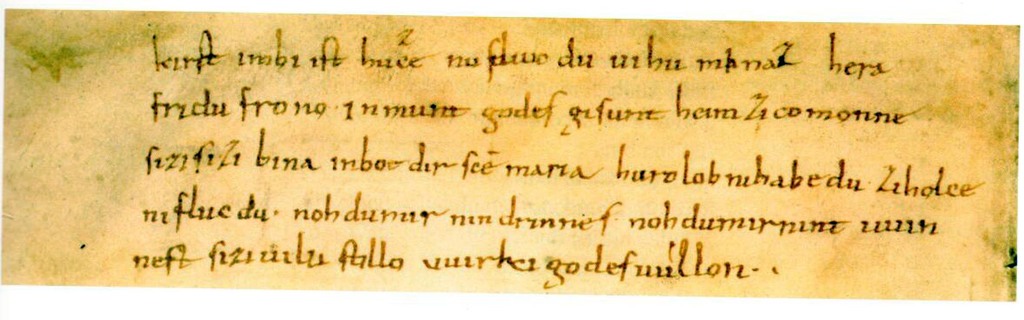 kirst imbi ist hucze nu fluic du uihu minaz hera
fridu frono in munt godes gisunt heim zi comonne
sizi sizi bina inbot dir sce maria hurolob nihabe du ziholce
ni fluc du noh du mir nindrinnes noh du mir nint uuin
nest sizi uilu stillo uuirki godes uuillon